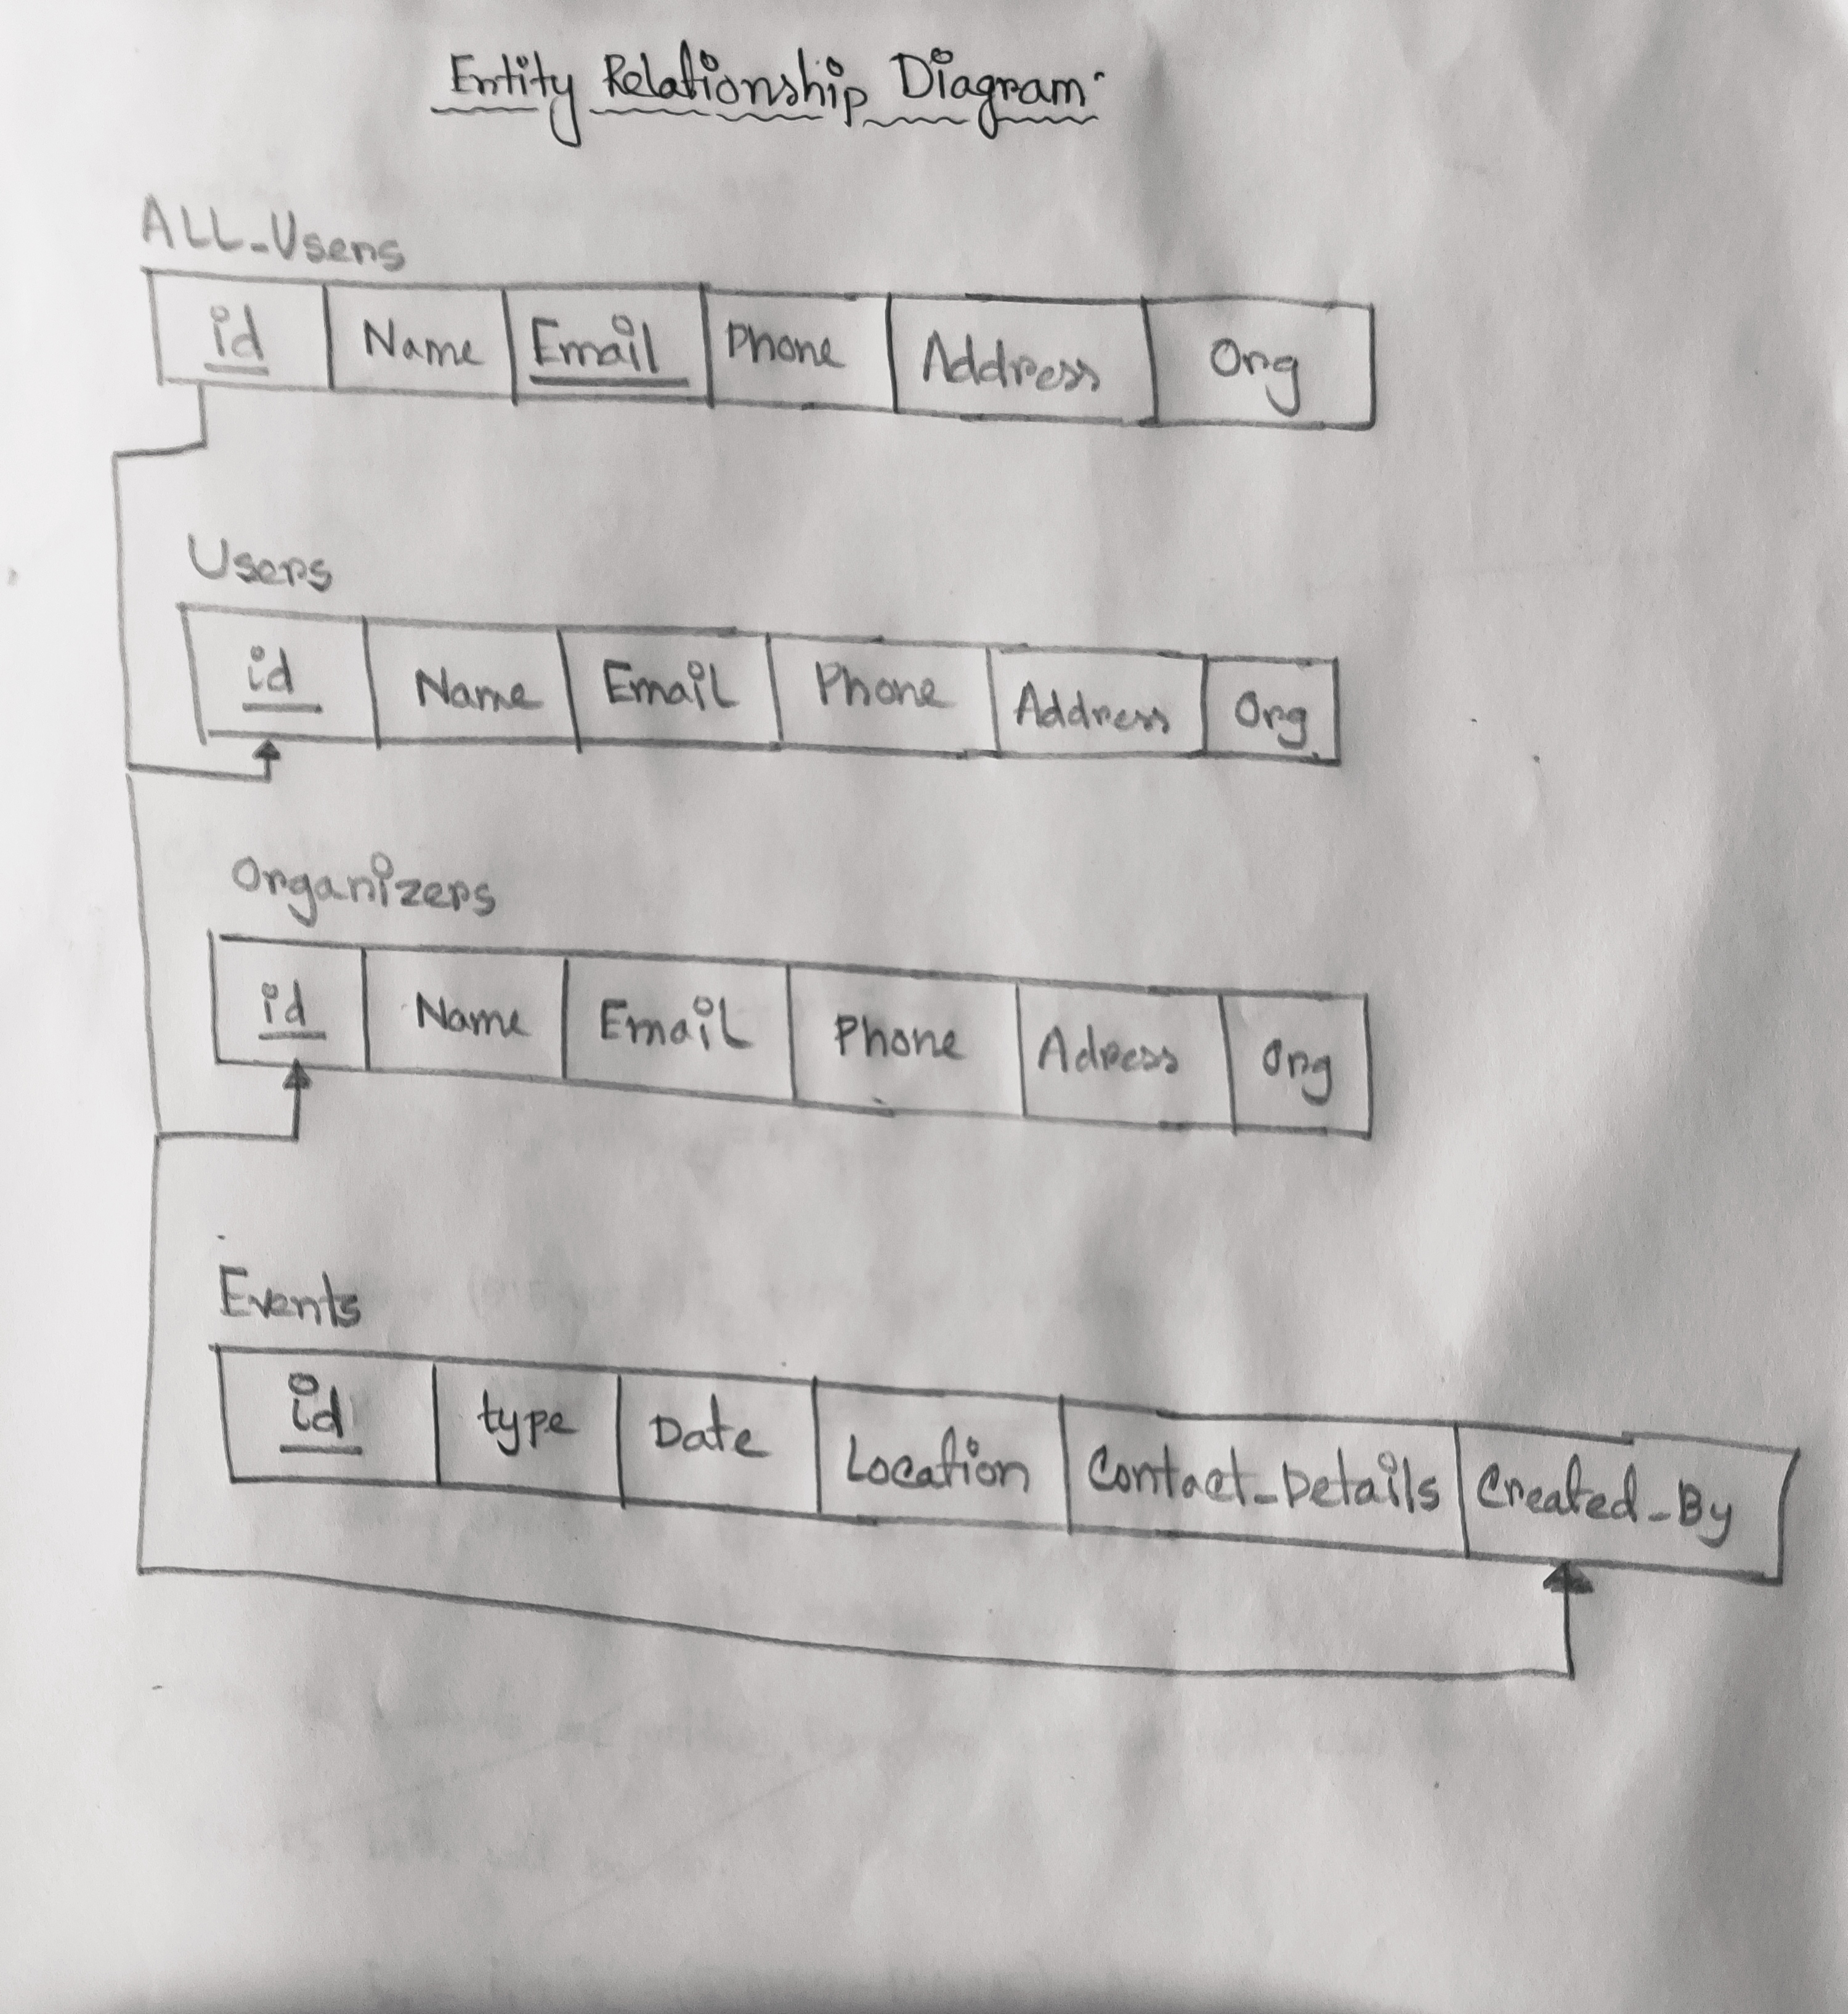 Entity Relationship Diagram
ALL_Users
id Name Email Phone Address Org
Users
id Name Email Phone Address Org
Organizers
id Name Email Phone Adress Org
Events
id type Date Location Contact_Details Created_By